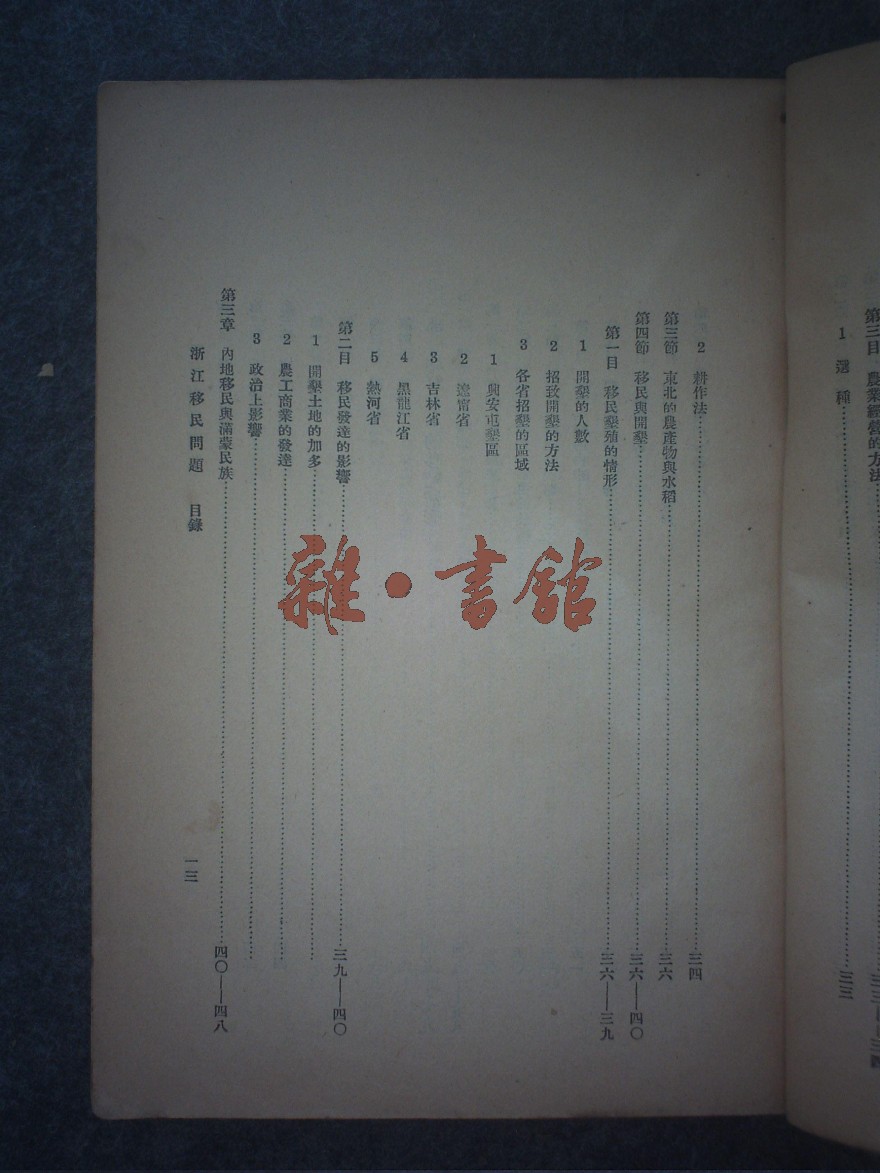 第三目 農業經營的方法……三三——三四
1 選種……三三
2 耕作法……三四
第三節 東北的農產物與水稻……三六
第四節 移民與開墾……三六——四〇
第一目 移民墾殖的情形……三六——三九
1 開墾的人數
2 招致開墾的方法
3 各省招墾的區域
1 興安屯墾區
2 遼甯省
3 吉林省
4 黑龍江省
5 熱河省
第二目 移民發達的影響……三九——四〇
1 開墾土地的加多……
2 農工商業的發達……
3 政治上影響……
第三章 內地移民與滿蒙民族……四〇——四八
浙江移民問題 目錄
一三
雜·書館